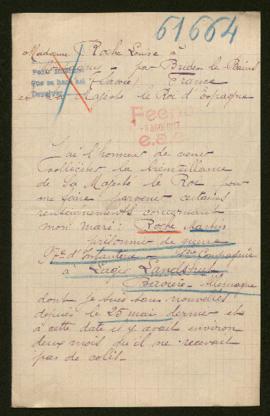 61664
Madame Roche Louise à
par Brides les Bains
(Savoie) France
Majesté le Roi d'Espagne
J'ai l'honneur de venir
solliciter la bienveillance
de Sa Majesté le Roi pour
me faire parvenir certains
renseignements concernant
mon mari: Roche
prisonnier de guerre
d'Infanterie Compagnie
à Lager Landshut
Bavière Allemagne
dont je suis sans nouvelles
depuis le 25 mai dernier et
à cette date il y avait environ
deux mois qu'il ne recevait
pas de colis.